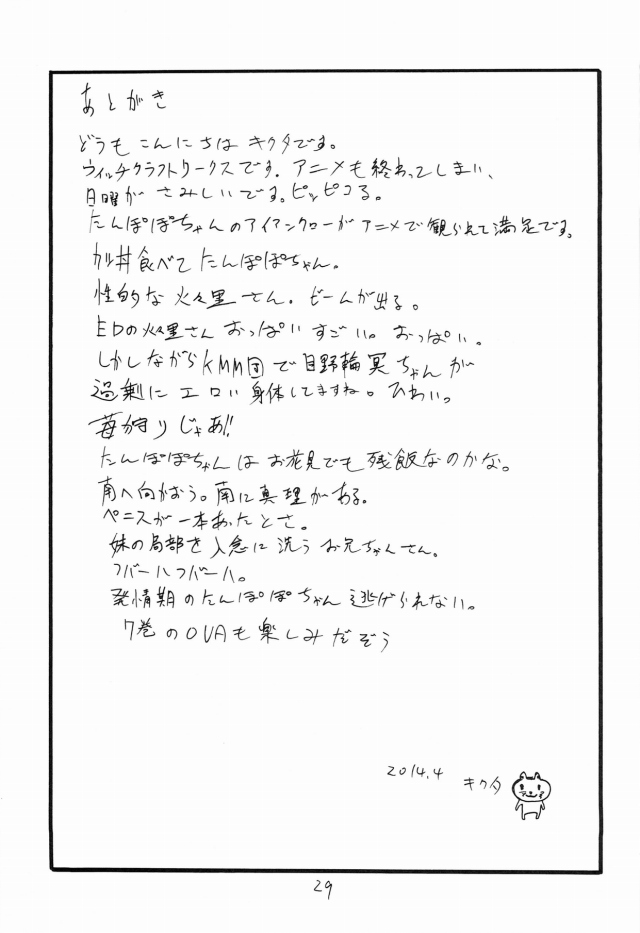 あとがき
どうも こんにちは キクタです。
ウィッチクラフトワークスです. アニメも終わってしまい、
日曜が さみしいです。ピッピコる。
たんぽぽちゃんのアイアンクローが アニメで観られて満足です。
カツ丼食べて たんぽぽちゃん。
性的な 火々里さん. ビームが出る。
EDの火々里さん おっぱい すごい。おっぱい。
しかしながらKMM団で目野輪冥ちゃんが
過剰に エロい 身体してますね。ひわい。
苺狩りじゃあ!!
たんぽぽちゃんは お花見でも 残飯なのかな。
南へ向かおう。南に真理がある。
ペニスが一本あったとさ。
妹の局部を 入念に 洗う お兄ちゃんさん。
フバーハフバーハ。
発情期のたんぽぽちゃん 逃げられない。
7巻のOVAも楽しみだぞう
2014.4 キクタ
29